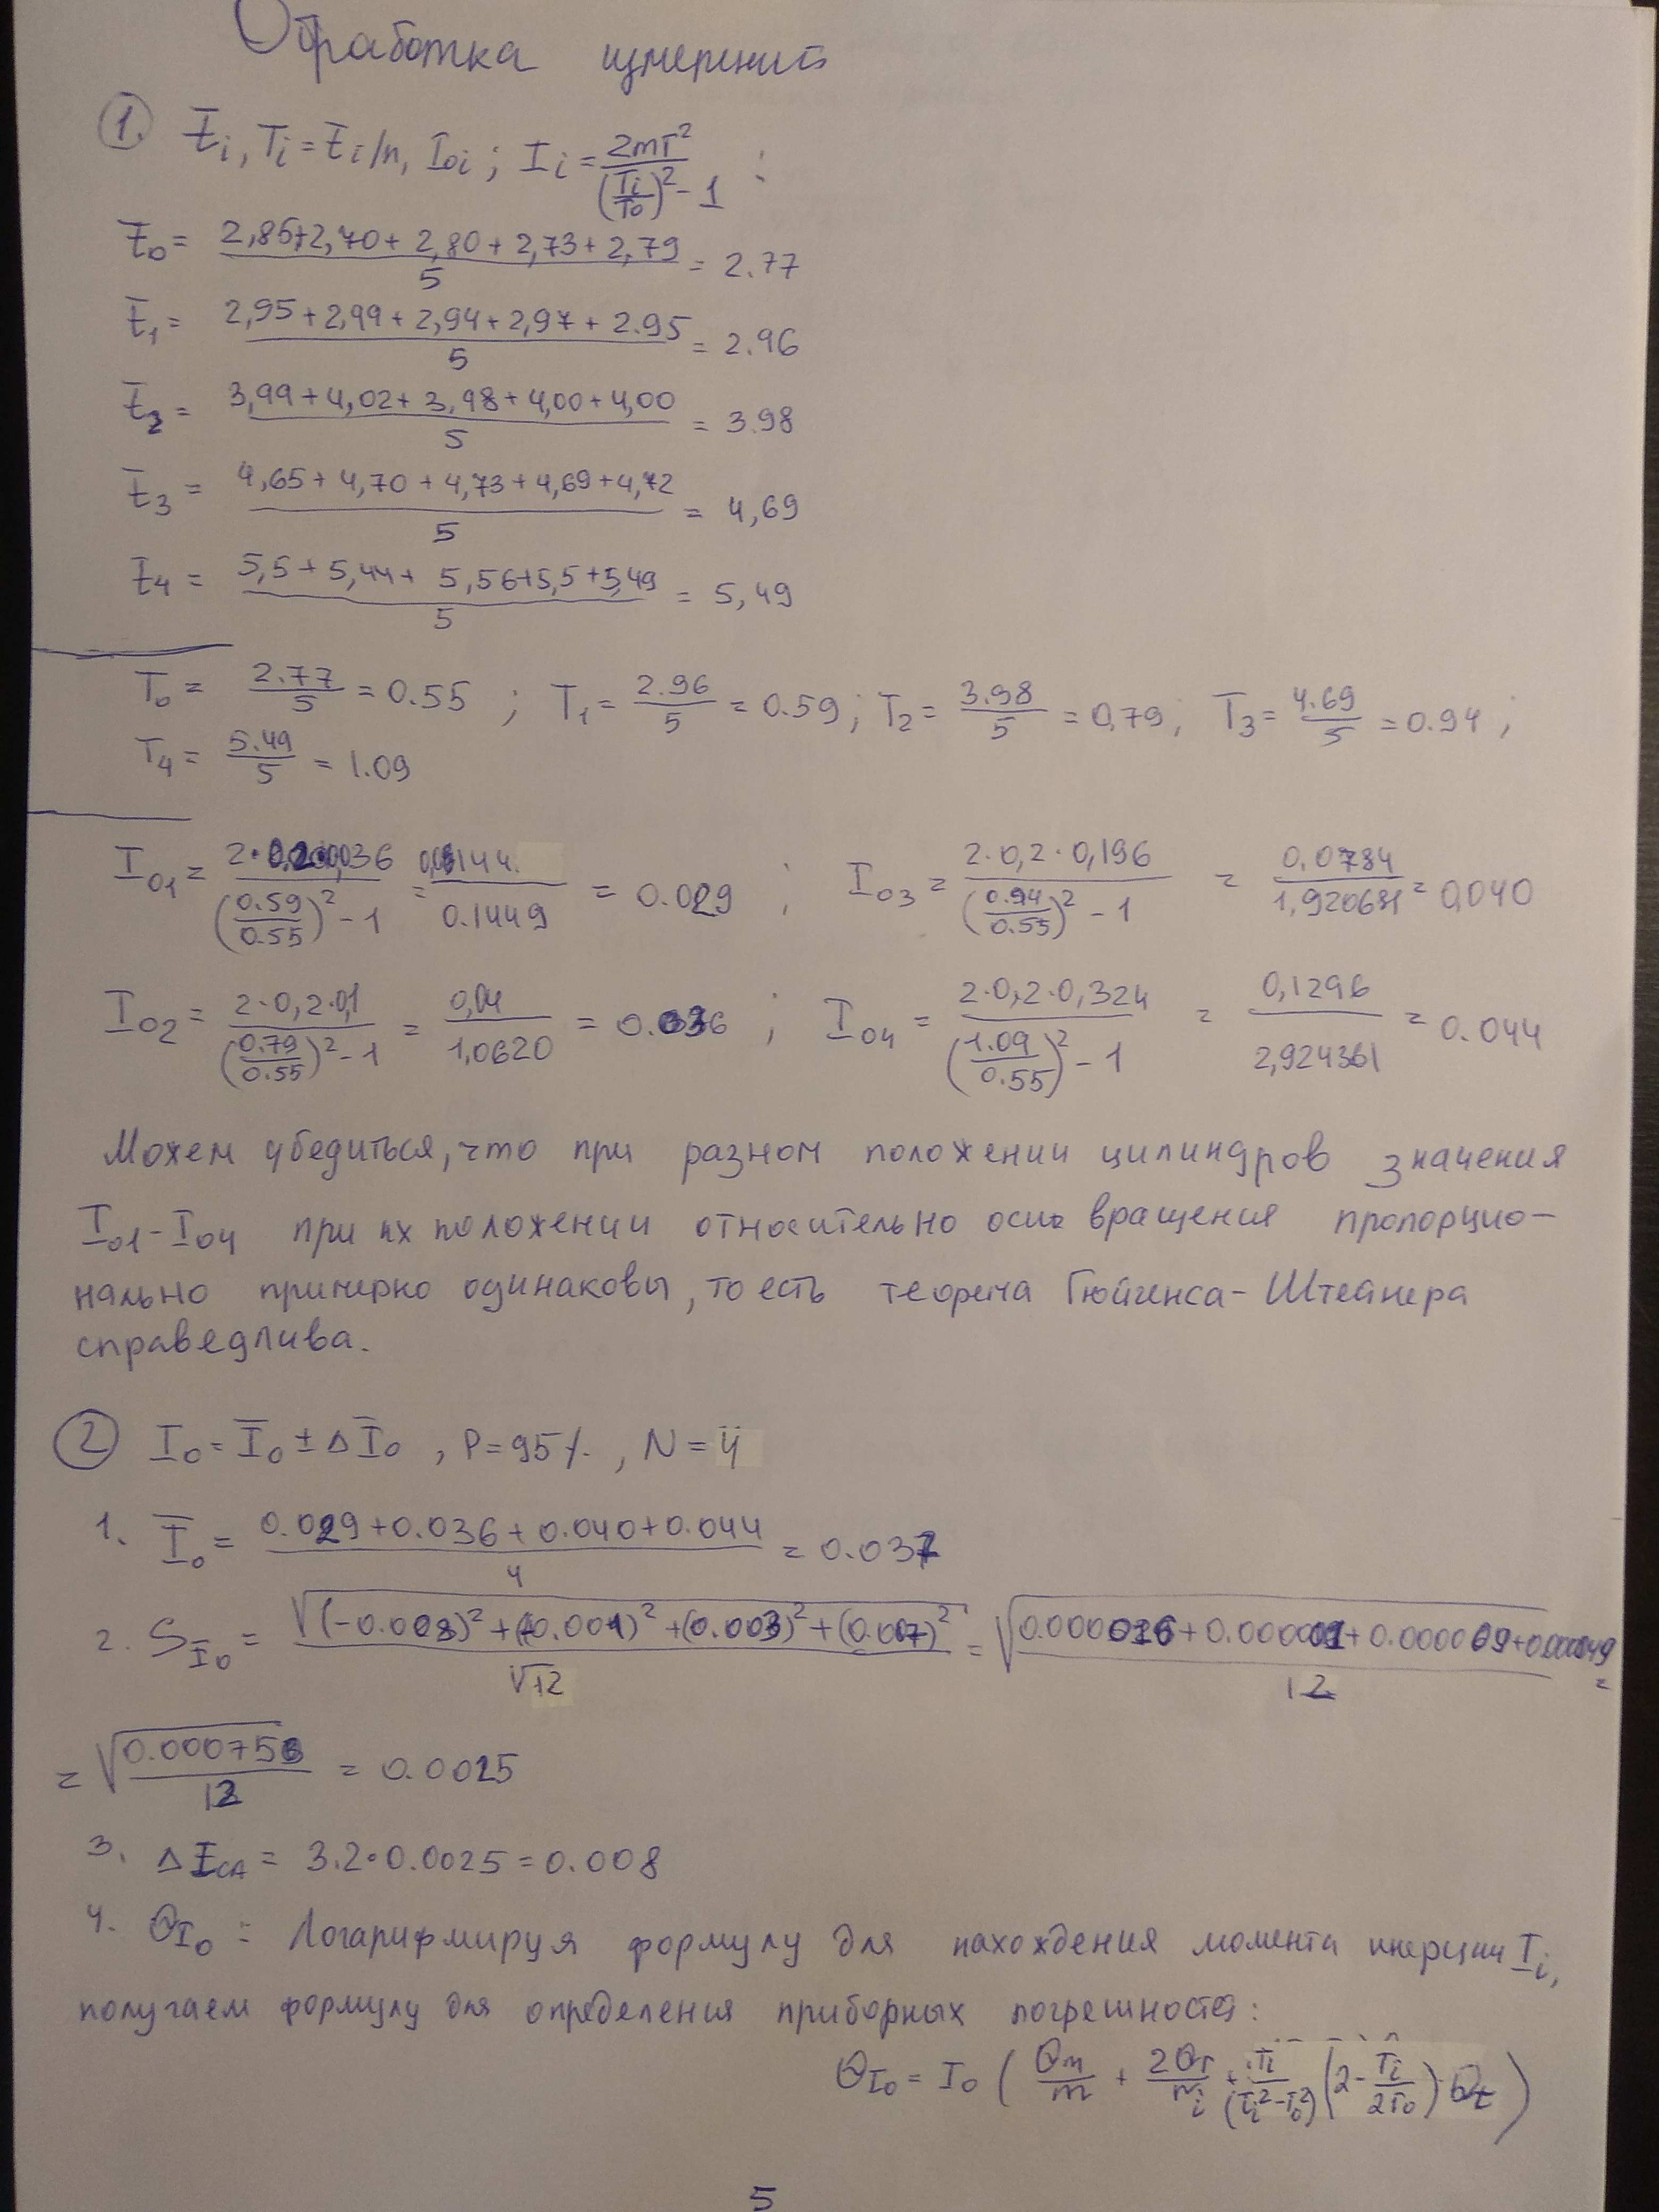 Обработка измерений
1. t̄i, Ti = t̄i/n, I0i; Ii = 2mr² / ((Ti/T0)² - 1) :
t̄0 = (2,85+2,70+2,80+2,73+2,79)/5 = 2.77
t̄1 = (2,95+2,99+2,94+2,97+2.95)/5 = 2.96
t̄2 = (3,99+4,02+3,98+4,00+4,00)/5 = 3.98
t̄3 = (4,65+4,70+4,73+4,69+4,72)/5 = 4,69
t̄4 = (5,5+5,44+5,56+5,5+5,49)/5 = 5,49
T0 = 2.77/5 = 0.55 ; T1 = 2.96/5 = 0.59; T2 = 3.98/5 = 0,79; T3 = 4.69/5 = 0.94 ;
T4 = 5.49/5 = 1.09
I01 = 2·0,2·0,036 / ((0.59/0.55)² - 1) = 0,0144/0.1449 = 0.029 ; I03 = 2·0,2·0,196 / ((0.94/0.55)² - 1) = 0,0784/1,920681 = 0,040
I02 = 2·0,2·0,1 / ((0.79/0.55)² - 1) = 0,04/1,0620 = 0.036 ; I04 = 2·0,2·0,324 / ((1.09/0.55)² - 1) = 0,1296/2,924361 = 0.044
Можем убедиться, что при разном положении цилиндров значения
I01-I04 при их положении относительно оси вращения пропорцио-
нально примерно одинаковы, то есть теорема Гюйгенса-Штейнера
справедлива.
2 I0 = Ī0 ± ΔĪ0 , P=95% , N=4
1. Ī0 = (0.029+0.036+0.040+0.044)/4 = 0.037
2. SĪ0 = √((-0.008)²+(-0.001)²+(0.003)²+(0.007)²) / √12 = √((0.000016+0.000001+0.000009+0.000049)/12) =
= √(0.000756/12) = 0.0025
3. ΔIСЛ = 3.2·0.0025 = 0.008
4. ΘI0 = Логарифмируя формулу для нахождения момента инерции Ii,
получаем формулу для определения приборных погрешностей:
ΘI0 = I0 (Θm/m + 2Θr/ri + Ti/(Ti²-T0²) (2 - Ti/2T0) Θt)
5